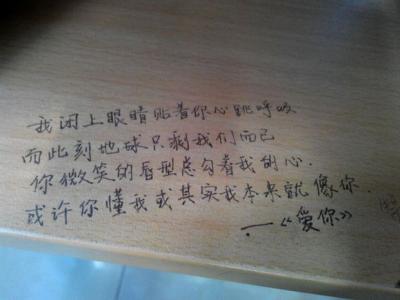 我闭上眼睛贴着你心跳呼吸
而此刻地球只剩我们而已
你微笑的唇型总勾着我的心.
或许你懂我或其实我本来就像你.
—《爱你》